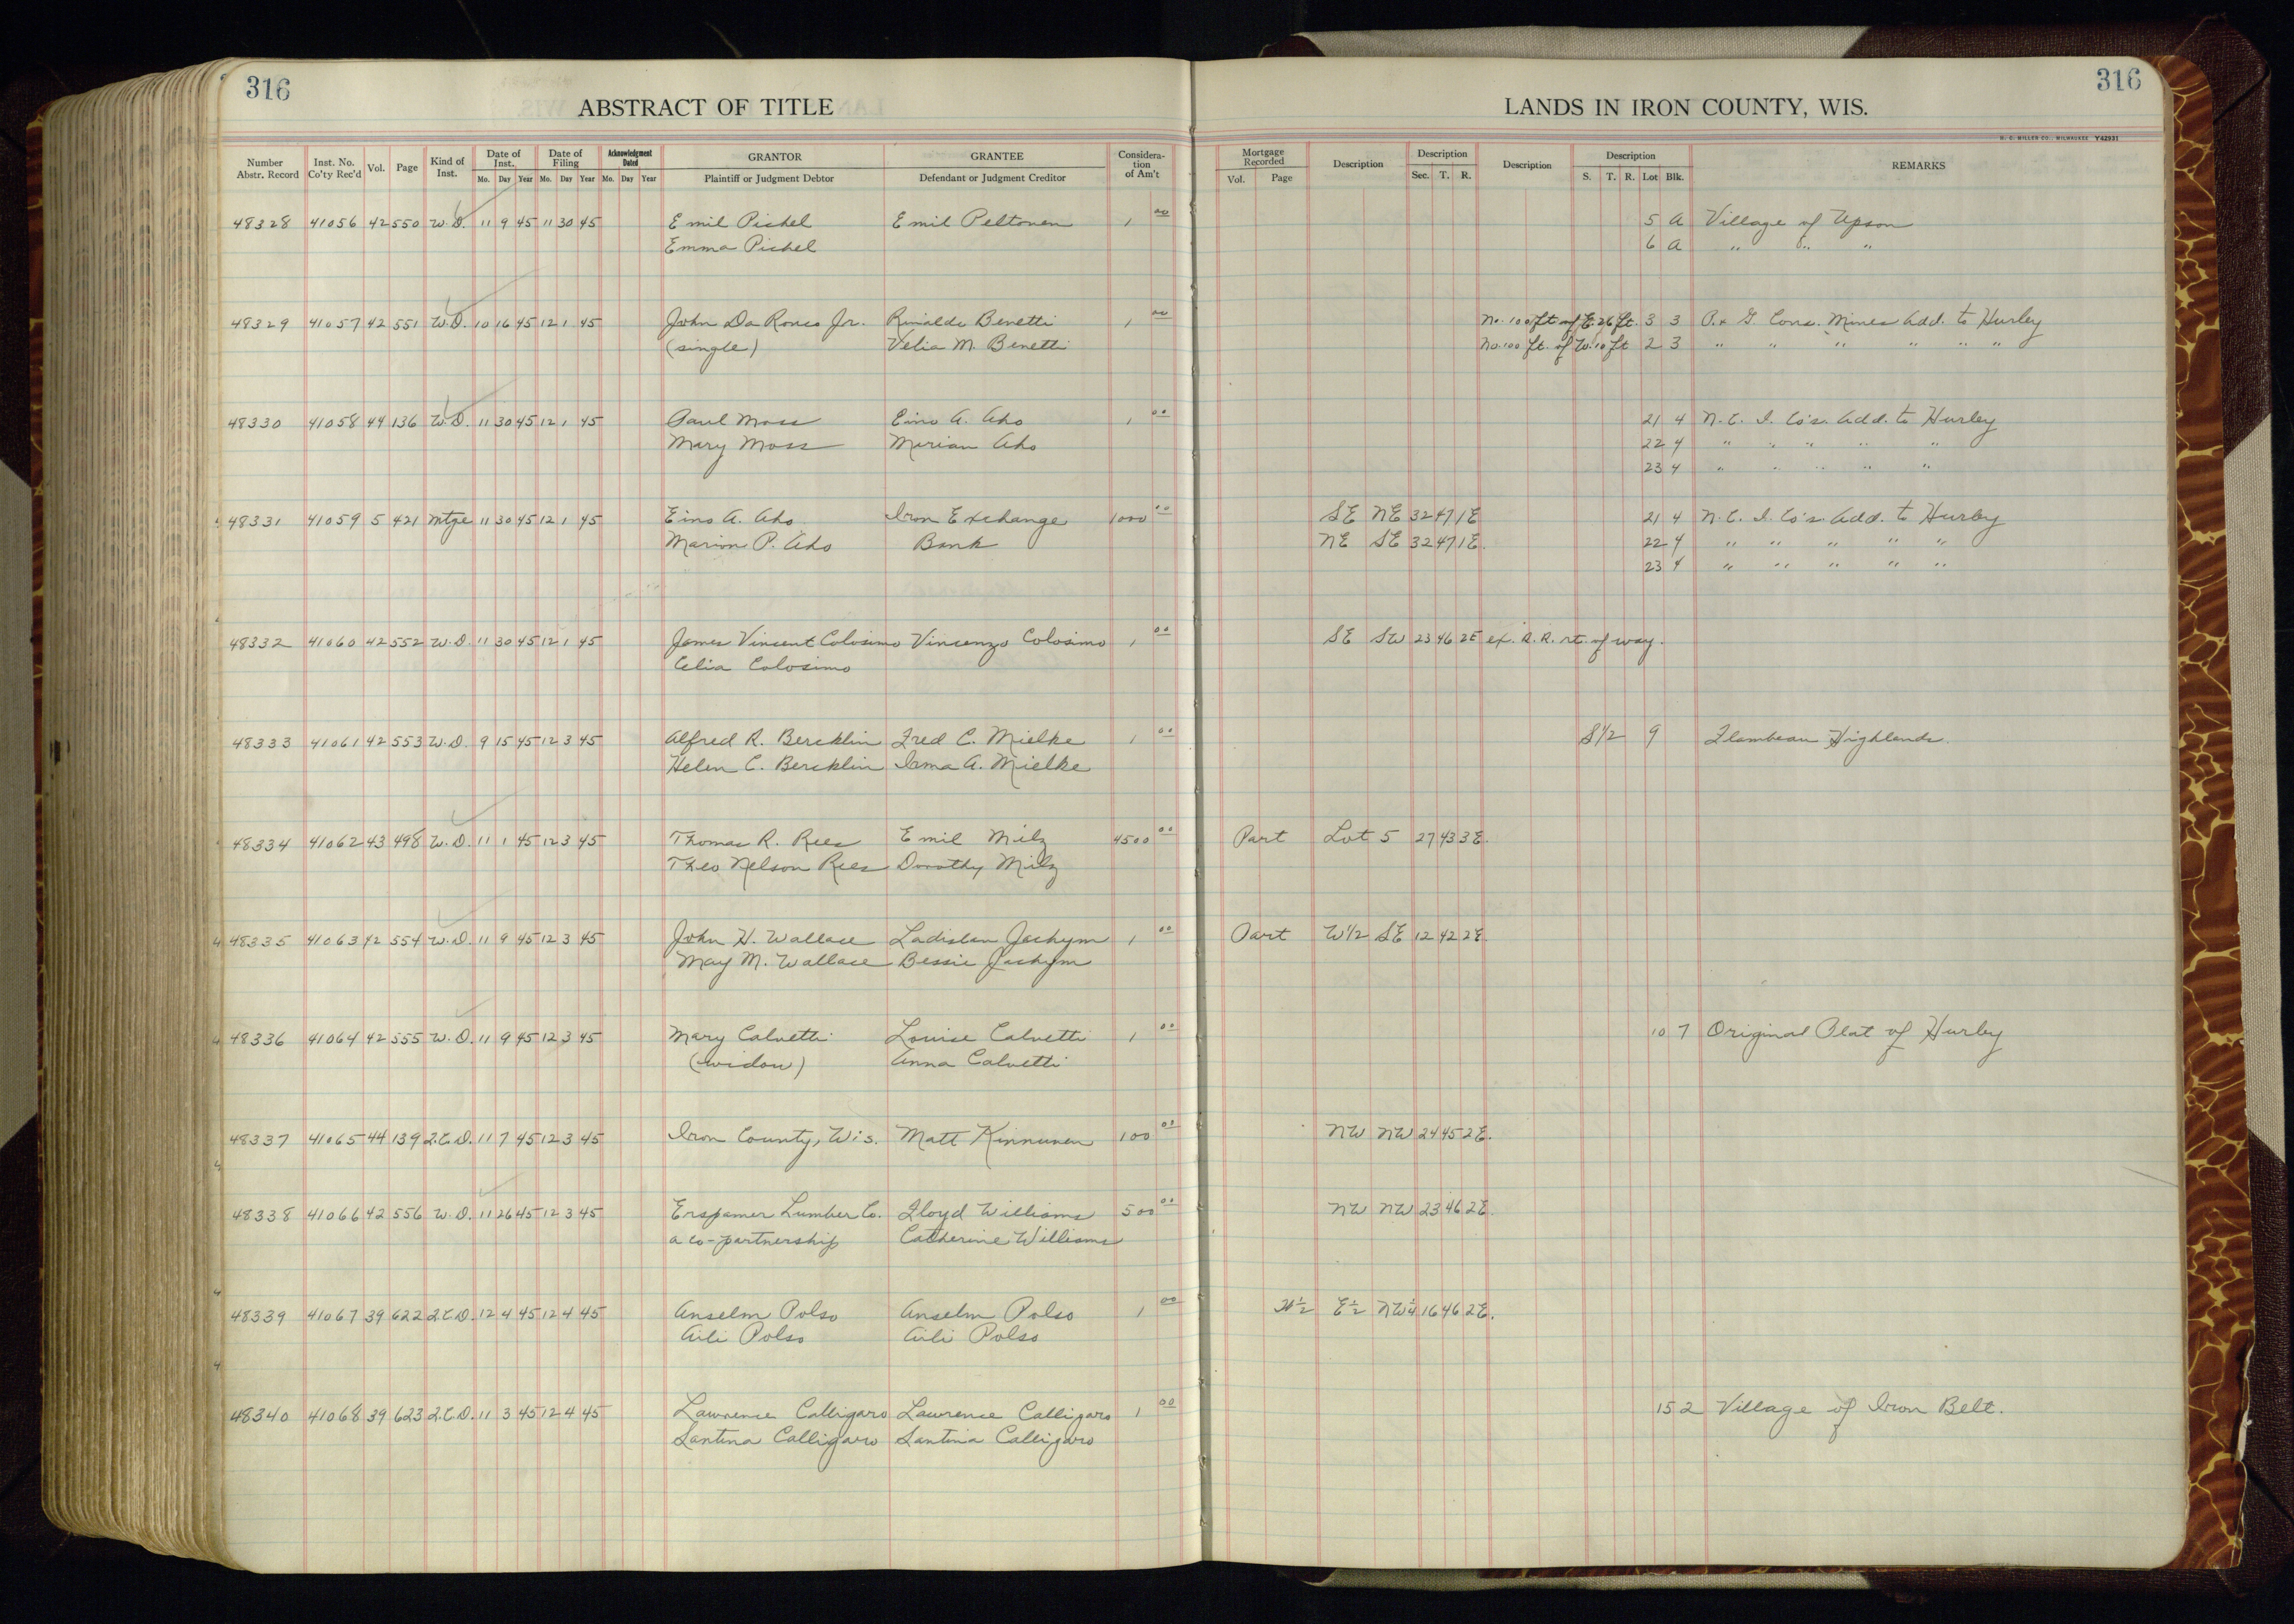 316
316
ABSTRACT OF TITLE
LANDS IN IRON COUNTY, WIS.
H. C. MILLER CO., MILWAUKEE Y42931
Number Abstr. Record Inst. No. Co'ty Rec'd Vol. Page Kind of Inst. Date of Inst. Mo. Day Year Date of Filing Mo. Day Year Acknowledgment Dated Mo. Day Year GRANTOR Plaintiff or Judgment Debtor GRANTEE Defendant or Judgment Creditor Consideration of Am't Mortgage Recorded Vol. Page Description Description Sec. T. R. Description Description S. T. R. Lot Blk. REMARKS
48328 41056 42 550 W.D. 11 9 45 11 30 45 Emil Pichel Emil Peltonen 1 00 5 A Village of Upson
Emma Pichel 6 A " " "
48329 41057 42 551 W.D. 10 16 45 12 1 45 John Da Ronco Jr. Rinaldo Benetti 1 00 No. 100 ft of E. 26 ft. 3 3 P. & G. Cons. Mines Add. to Hurley
(single) Velia M. Benetti No. 100 ft. of W. 10 ft 2 3 " " " " " "
48330 41058 44 136 W.D. 11 30 45 12 1 45 Paul Moss Eino A. Aho 1 00 21 4 N. C. I. Co's. Add. to Hurley
Mary Moss Mirian Aho 22 4 " " " " "
23 4 " " " " "
48331 41059 5 421 Mtge 11 30 45 12 1 45 Eino A. Aho Iron Exchange 1000 00 SE NE 32 47 1E 21 4 N. C. I. Co's. Add. to Hurley
Marion P. Aho Bank NE SE 32 47 1E. 22 4 " " " " "
23 4 " " " " "
48332 41060 42 552 W.D. 11 30 45 12 1 45 James Vincent Colosimo Vincenzo Colosimo 1 00 SE SW 23 46 2E ex. R.R. rt. of way.
Celia Colosimo
48333 41061 42 553 W.D. 9 15 45 12 3 45 Alfred R. Bercklin Fred C. Mielke 1 00 S1/2 9 Flambeau Highlands.
Helen C. Bercklin Irma A. Mielke
48334 41062 43 498 W.D. 11 1 45 12 3 45 Thomas R. Rees Emil Milz 4500 00 Part Lot 5 27 43 3E.
Theo Nelson Rees Dorothy Milz
48335 41063 42 554 W.D. 11 9 45 12 3 45 John H. Wallace Ladislau Jachym 1 00 Part W1/2 SE 12 42 2E.
May M. Wallace Bessie Jachym
48336 41064 42 555 W.D. 11 9 45 12 3 45 Mary Calvetti Louise Calvetti 1 00 10 7 Original Plat of Hurley
(widow) Anna Calvetti
48337 41065 44 139 Q.C.D. 11 7 45 12 3 45 Iron County, Wis. Matt Kinnunen 100 00 NW NW 24 45 2E.
48338 41066 42 556 W.D. 11 26 45 12 3 45 Erspamer Lumber Co. Floyd Williams 500 00 NW NW 23 46 2E.
a co-partnership Catherine Williams
48339 41067 39 622 Q.C.D. 12 4 45 12 4 45 Anselm Polso Anselm Polso 1 00 W½ E½ NW¼ 16 46 2E.
Aili Polso Aili Polso
48340 41068 39 623 Q.C.D. 11 3 45 12 4 45 Lawrence Calligaro Lawrence Calligaro 1 00 15 2 Village of Iron Belt.
Santina Calligaro Santina Calligaro